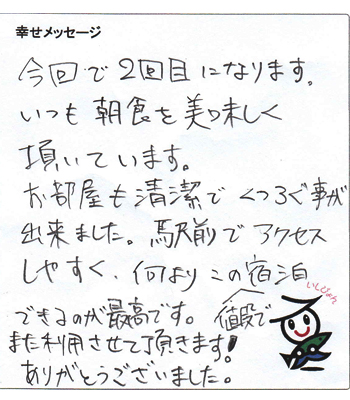 幸せメッセージ
今回で2回目になります。
いつも朝食を美味しく
頂いています。
お部屋も清潔でくつろぐ事が
出来ました。駅前でアクセス
しやすく、何よりこの宿泊
値段で
できるのが最高です。
また利用させて頂きます!
ありがとうございました。